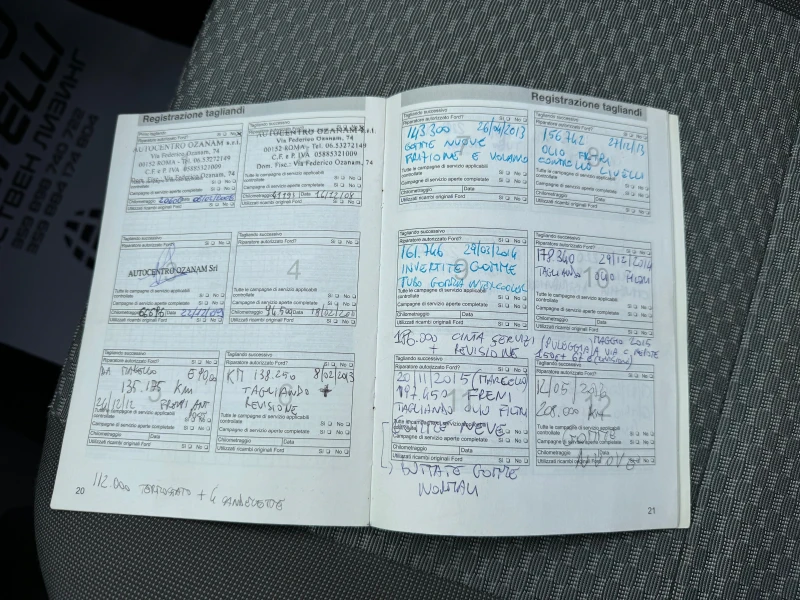 Registrazione tagliandi
Primo tagliando
Riparatore autorizzato Ford? Sì No
AUTOCENTRO OZANAM s.r.l.
Via Federico Ozanam, 74
00152 ROMA - Tel. 06.53272149
C.F. e P. IVA 05885321009
AUTOCENTRO OZANAM s.r.l.
Via Federico Ozanam, 74
00152 ROMA - Tel. 06.53272149
C.F. e P. IVA 05885321009
Dom. Fisc.: Via Federico Ozanam, 74
Chilometraggio Data
Utilizzati ricambi originali Ford Sì No
Chilometraggio Data 16/12/08
Utilizzati ricambi originali Ford Sì No
Tagliando successivo
Riparatore autorizzato Ford? Sì No
AUTOCENTRO OZANAM Srl
Tutte le campagne di servizio applicabili
controllate Sì No
Campagne di servizio aperte completate Sì No
Chilometraggio Data
Utilizzati ricambi originali Ford Sì No
Tagliando successivo
Riparatore autorizzato Ford? Sì No
4
Tutte le campagne di servizio applicabili
controllate Sì No
Campagne di servizio aperte completate Sì No
Chilometraggio 94.500 Data 18/02/
Utilizzati ricambi originali Ford Sì No
Tagliando successivo
Riparatore autorizzato Ford? Sì No
DA MARCELLO €
135.175 KM
24/12/12 FRENI ANT
Tutte le campagne di servizio applicabili
controllate Sì No
Campagne di servizio aperte completate Sì No
Chilometraggio Data
Utilizzati ricambi originali Ford Sì No
Tagliando successivo
Riparatore autorizzato Ford? Sì No
KM 138.250 8/02/2013
TAGLIANDO +
REVISIONE
Tutte le campagne di servizio applicabili
controllate Sì No
Campagne di servizio aperte completate Sì No
Chilometraggio Data
Utilizzati ricambi originali Ford Sì No
112.000 TERMOSTATO + 4 CANDELETTE
20
Registrazione tagliandi
Tagliando successivo
Riparatore autorizzato Ford? Sì No
143300 26/04/2013
GOMME NUOVE
FRIZIONE E VOLANO
Tutte le campagne di servizio applicabili
controllate Sì No
Campagne di servizio aperte completate Sì No
Chilometraggio Data
Utilizzati ricambi originali Ford Sì No
Tagliando successivo
Riparatore autorizzato Ford? Sì No
156.742 27/12/13
OLIO FILTRI
CONTROLLO LIVELLI
Campagne di servizio aperte completate Sì No
Chilometraggio Data
Utilizzati ricambi originali Ford Sì No
Tagliando successivo
Riparatore autorizzato Ford? Sì No
161.746 29/03/2014
INVERTITE GOMME
TUBO GOMMA INTERCOOLER
Tutte le campagne di servizio applicabili
controllate Sì No
Campagne di servizio aperte completate Sì No
Chilometraggio Data
Utilizzati ricambi originali Ford Sì No
Tagliando successivo
Riparatore autorizzato Ford? Sì No
178340 29/12/2014
TAGLIANDO OLIO FILTRI
10
Tutte le campagne di servizio applicabili
controllate Sì No
Campagne di servizio aperte completate Sì No
Chilometraggio Data
Utilizzati ricambi originali Ford Sì No
186.000 CINTA SERVIZI (PULEGGIA) MAGGIO 2015
+ REVISIONE
Tagliando successivo
Riparatore autorizzato Ford? Sì No
20/11/2015 (MARCELLO)
197.450 FRENI
TAGLIANDO OLIO FILTRI
GOMME NEVE
Campagne di servizio aperte completate Sì No
Chilometraggio Data
Utilizzati ricambi originali Ford Sì No
Riparatore autorizzato Ford? Sì No
12/05/
208.000 KM
12
Tutte le campagne di servizio applicabili
controllate Sì No
Campagne di servizio aperte completate Sì No
GOMME
Chilometraggio Data
NUOVE
Utilizzati ricambi originali Ford Sì No
GOMME
NORMALI
21